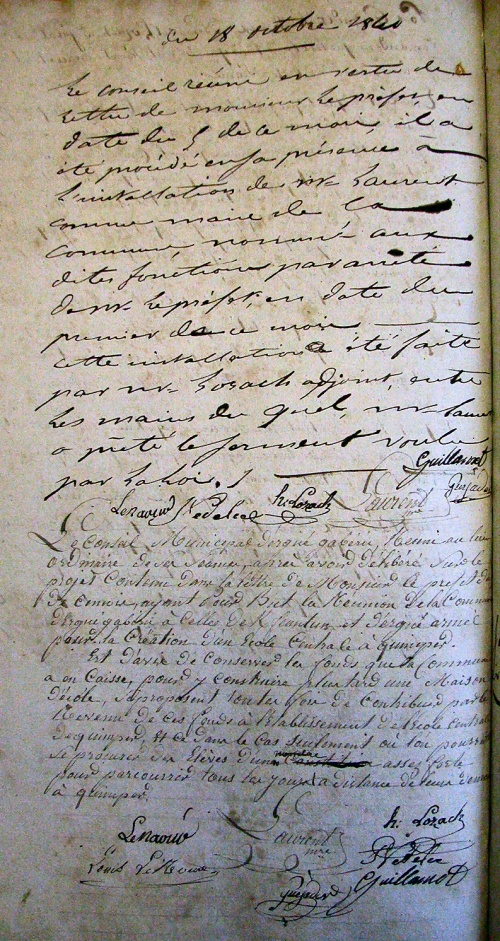 du 18 octobre 1840
Le conseil réuni en vertu de
lettre de monsieur Le préfet, en
date du 5 de ce mois, il a
été procédé en sa présence à
l'installation de Mr Laurent
comme maire de la
commune, nommé aux
dites fonctions par arrêté
de mr Le préfet, en date du
premier de ce mois
cette installation a été faite
par mr Lozach adjoint, entre
Les mains du quel, mr Laurent
a prêté le serment voulu
par La Loi. /
Guillamot
Lenaour Nedelec h. Lozach Laurent
Le Conseil Municipal d'ergué gabéric, Réuni au lieu
ordinaire de ses séances, après avoir délibéré sur le
projet Contenu dans la lettre de Monsieur le préfet du
de ce mois, ayant pour But la Réunion de la Commune
d'ergué gabéric à celles de et d'ergué armel
pour la Création d'un Ecole Centrale à quimper.
Est d'avis de Conserver les fonds que la Commune
a en Caisse, pour y Construire plus tard une Maison
d'école, Se proposant toute fois de Contribuer par le
Revenu de ces fonds à l'établissement de l'ecole Centrale
de quimper Et ce dans le Cas seulement où l'on pourrait
se procurer des Elèves d'un nombre assez forte
pour parcourrir tous les jours la distance de leur demeure
à quimper.
Lenaour Laurent mre h. Lozach
Louis Nedelec
Guillamot